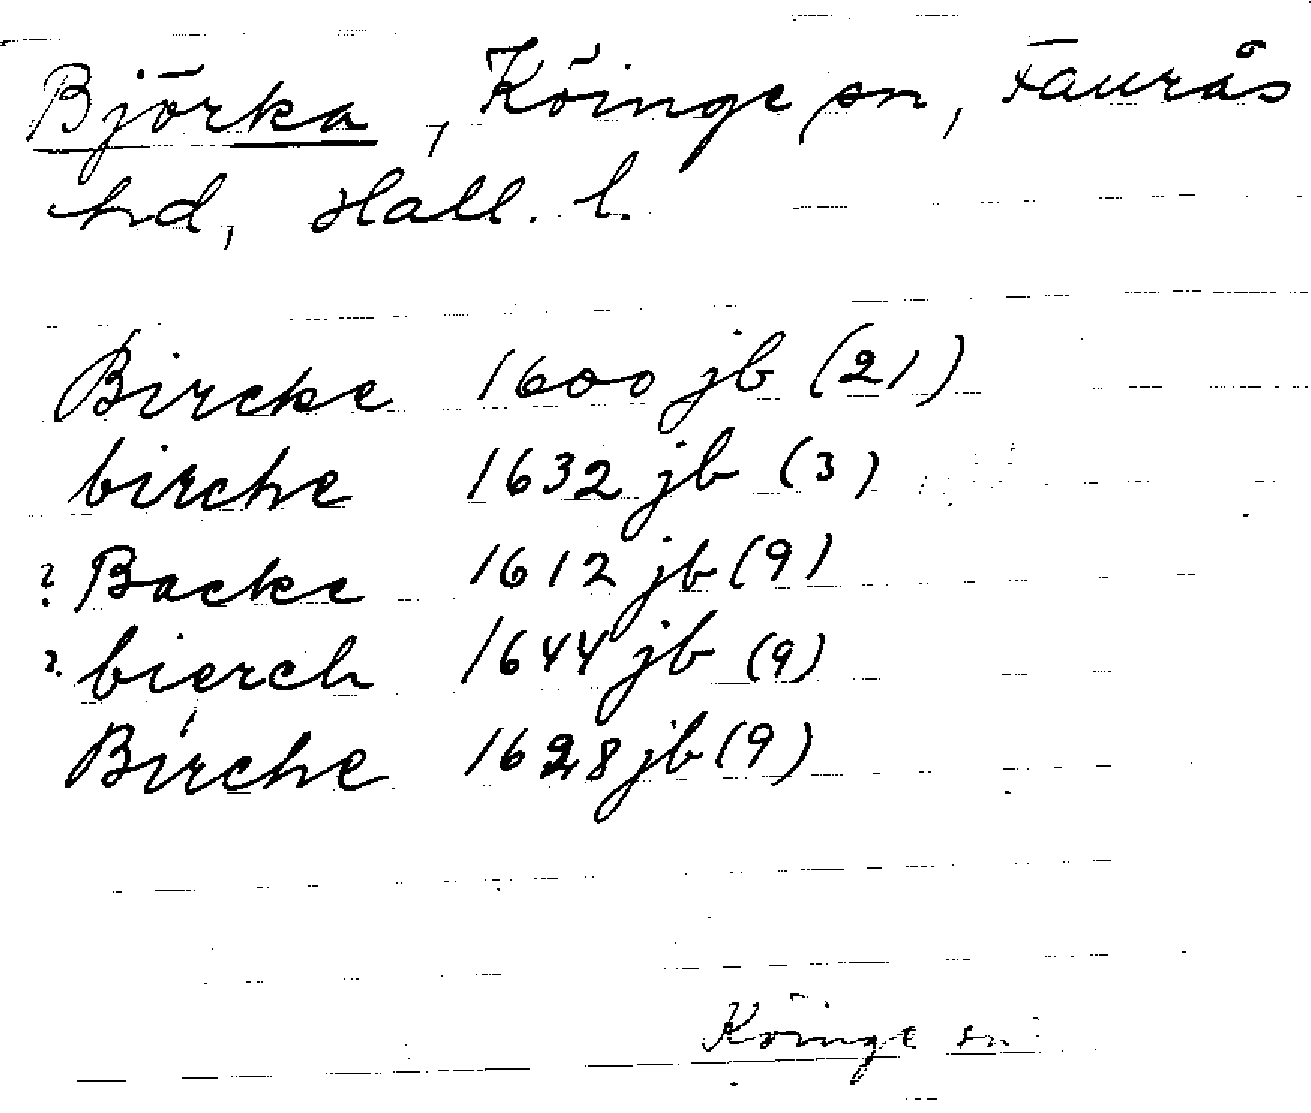 Björka, Köinge sn, Faurås
hd, Hall. l.
Bircke 1600 jb (21)
birche 1632 jb (3)
? Backe 1612 jb (9)
? bierch 1644 jb (9)
Birche 1628 jb (9)
Köinge sn